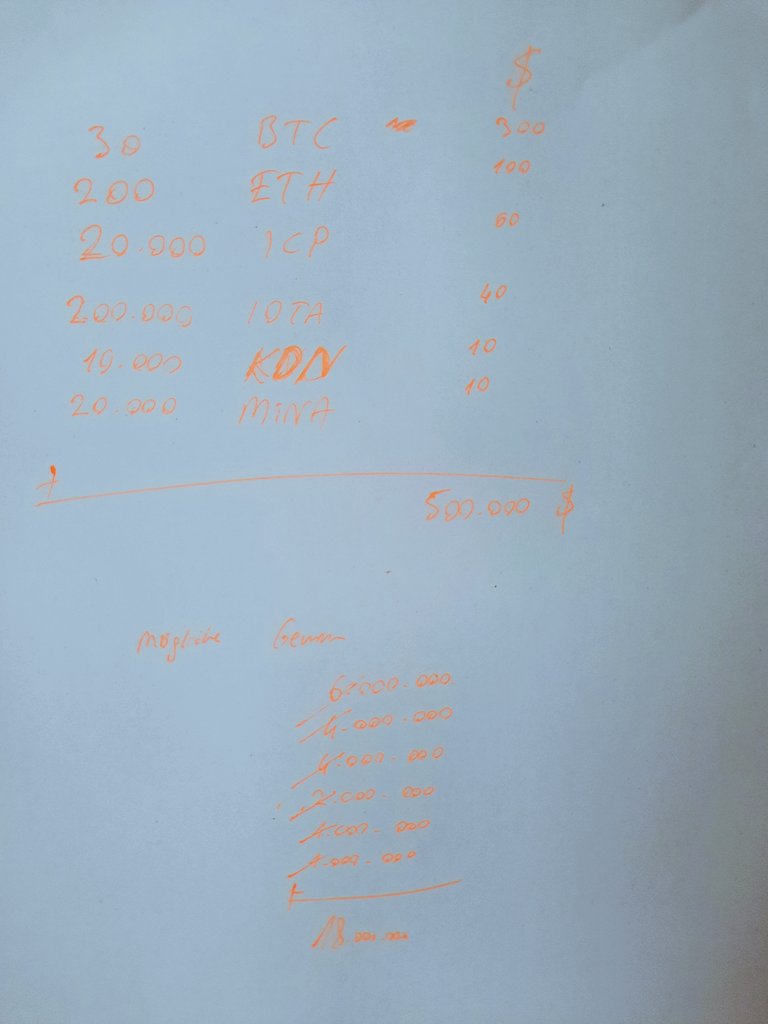 $
30 BTC 300
200 ETH 100
20.000 ICP 60
200.000 IOTA 40
10.000 KDN 10
20.000 MINA 10
+
500.000 $
Mögliche Gewinn
6.000.000
4.000.000
4.000.000
2.000.000
1.000.000
1.000.000
+
18.000.000